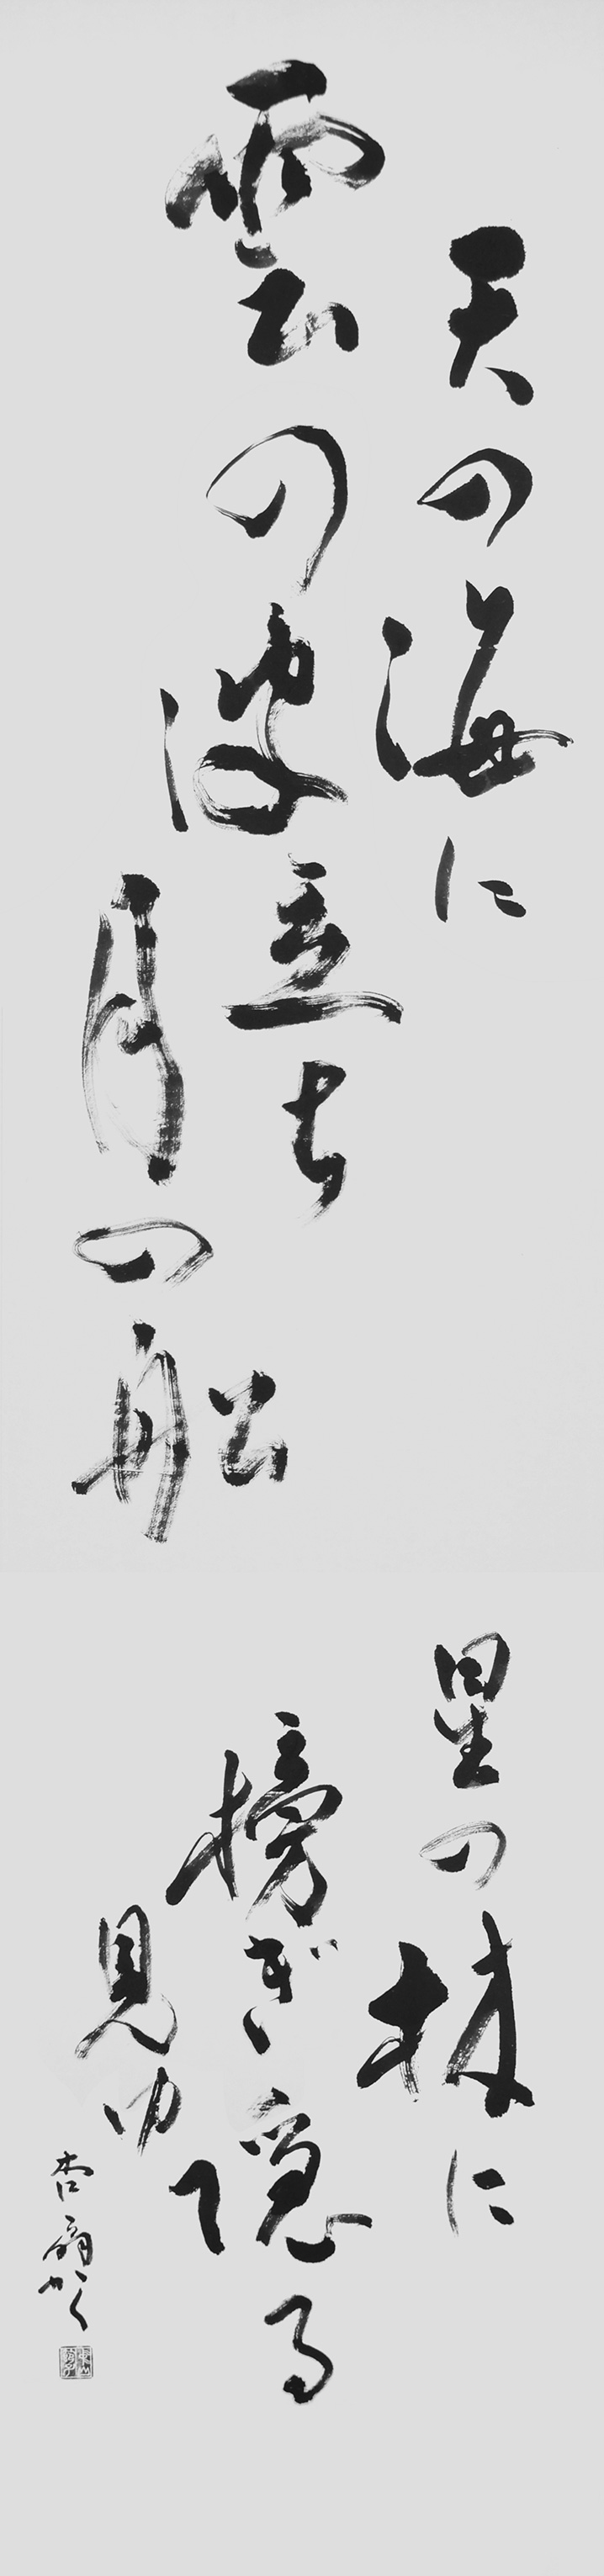 天の海に
雲の波立ち
月の船
星の林に
榜ぎ隠る
見ゆ
杏扇かく